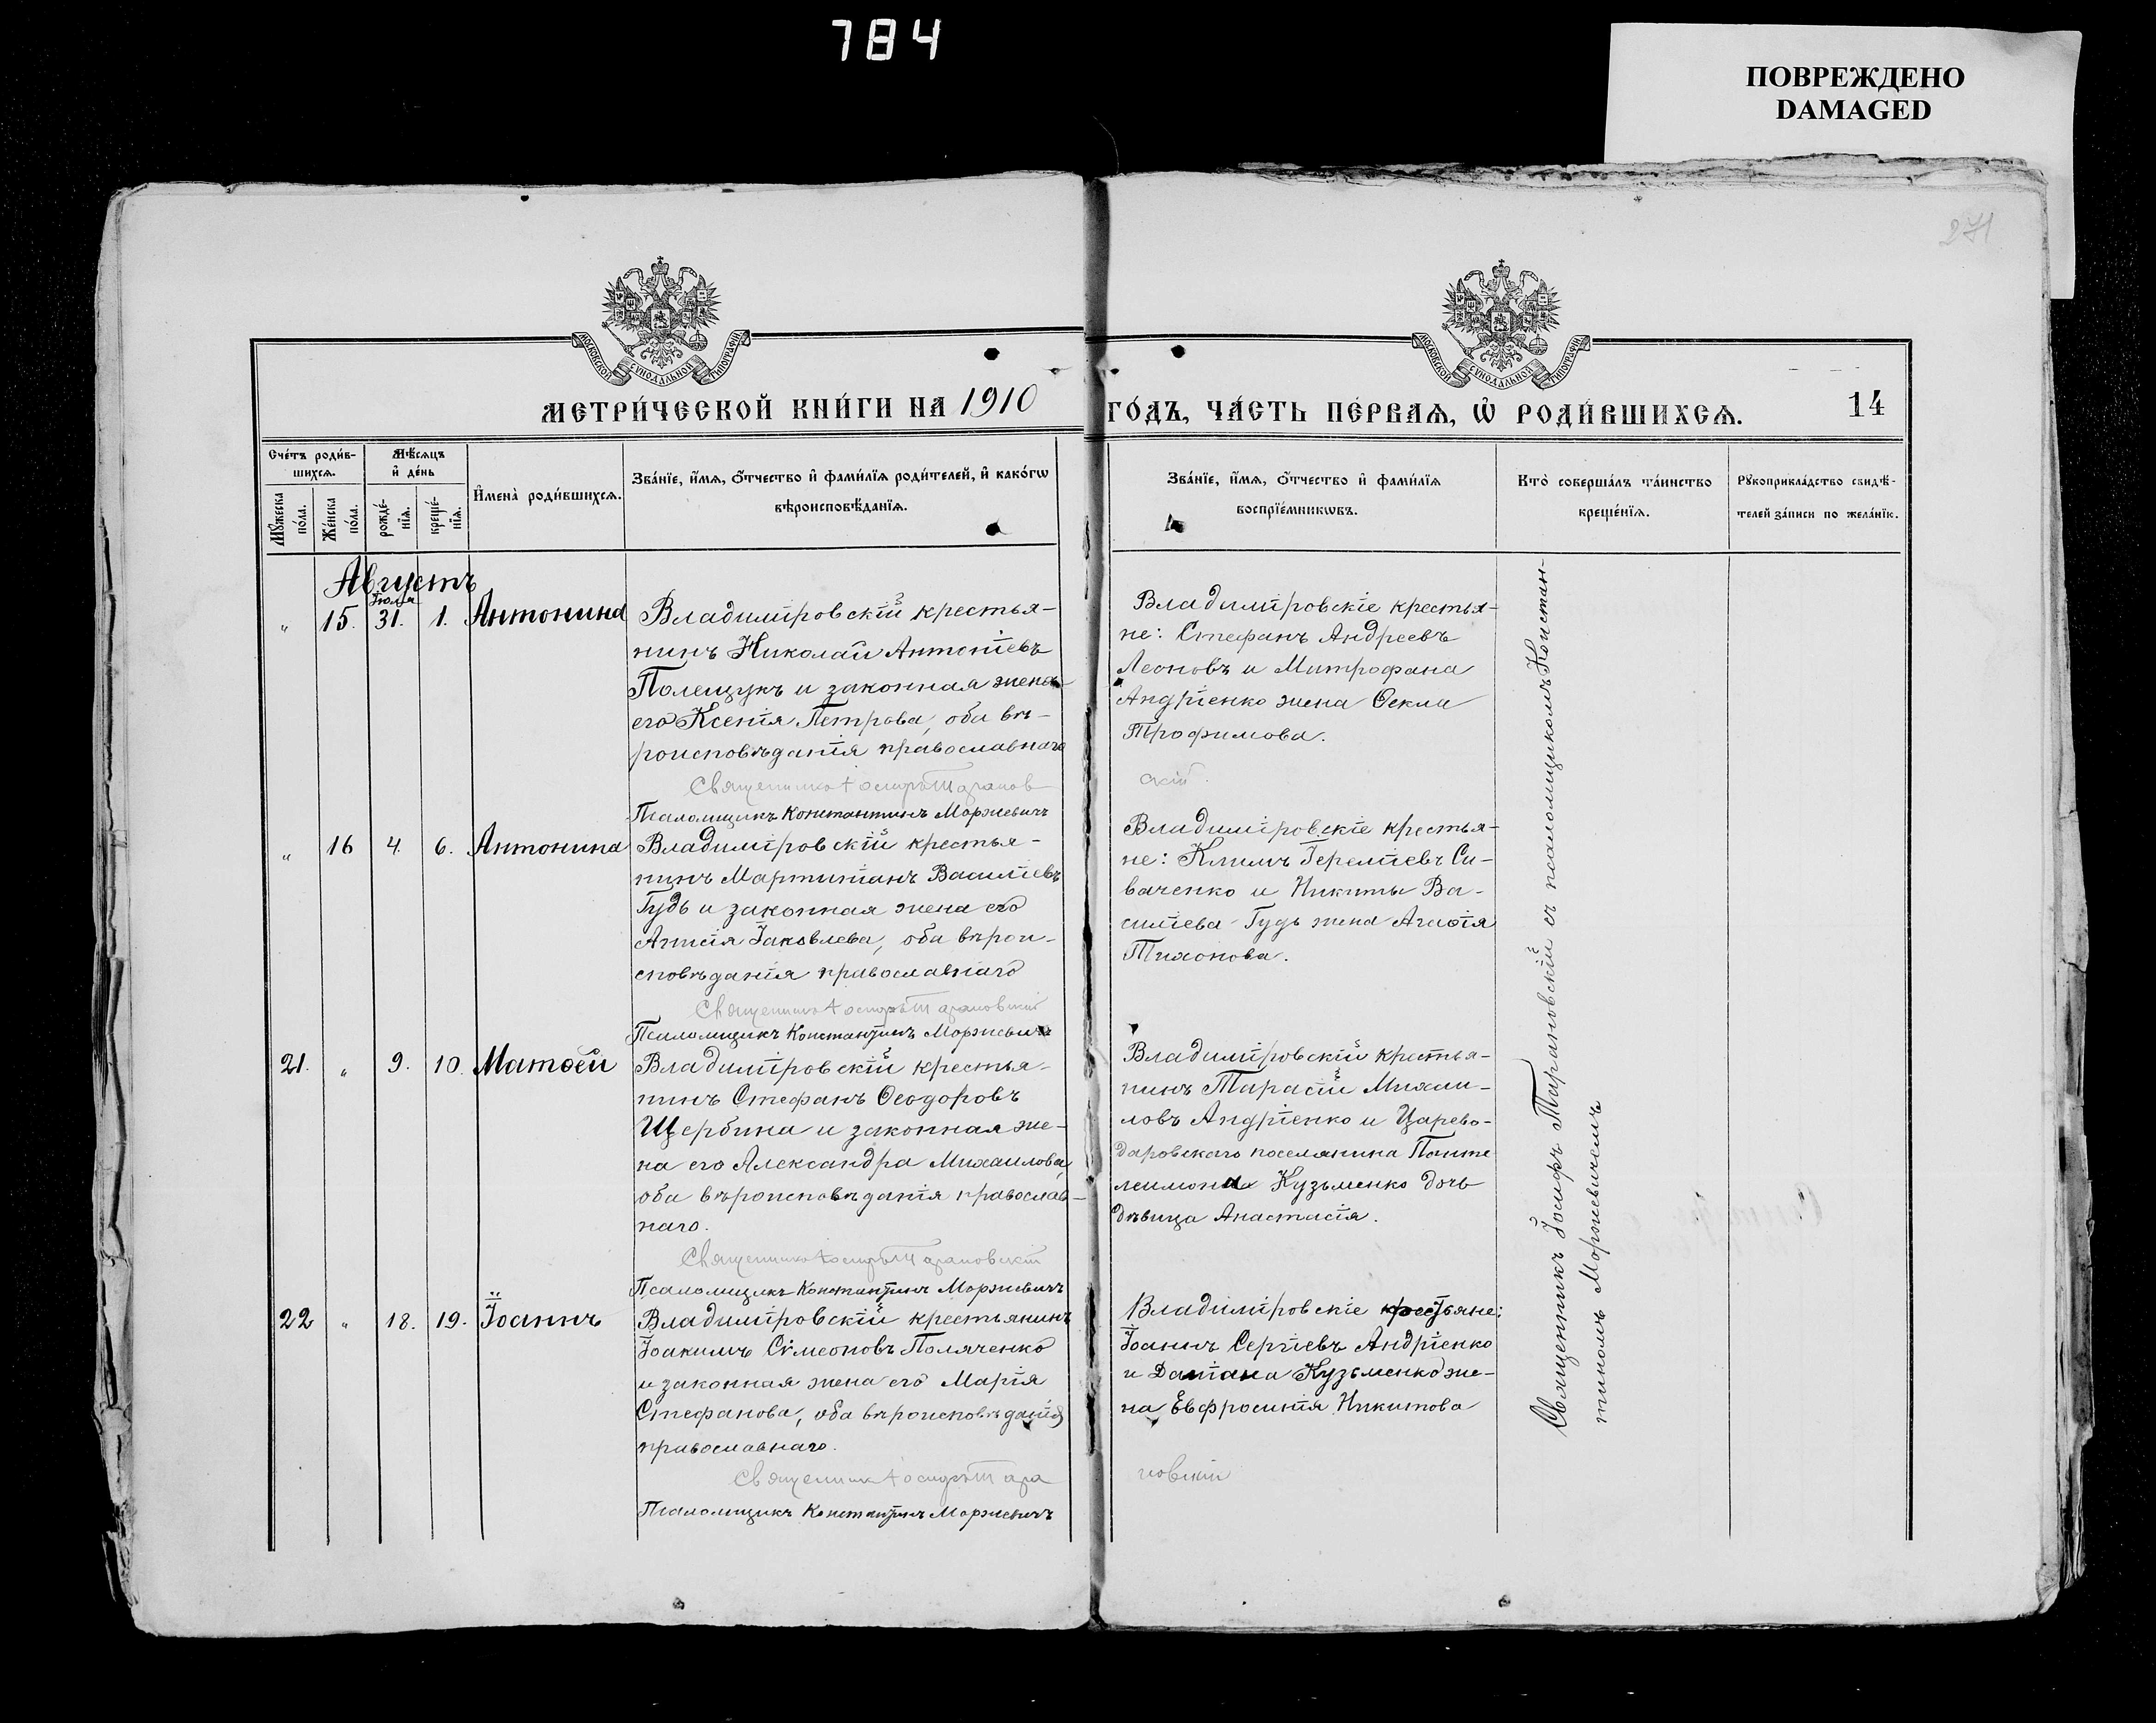 784
ПОВРЕЖДЕНО
DAMAGED
271
МОСКОВСКОЙ СУНОДАЛЬНОЙ ТИПОГРАФІИ
МОСКОВСКОЙ СУНОДАЛЬНОЙ ТИПОГРАФІИ
МЕТРИ́ЧЕСКОЙ КНИ́ГИ НА 1910
ГО́ДЪ, ЧА́СТЬ ПЕ́РВАЯ, Ѡ҆ РОДИ́ВШИХСЯ.
14
Сче́тъ роди́в-
шихся.
Мѣ́сяцъ
и҆ де́нь
Мꙋ́жеска
по́ла.
Же́нска
по́ла.
рожде́-
нїя.
креще́-
нїя.
И҆мена̀ роди́вшихся.
Зва́нїе, и҆́мя, ѻ҆́тчество и҆ фами́лїя роди́телей, и҆ како́гѡ
вѣроисповѣ́данїя.
Зва́нїе, и҆́мя, ѻ҆́тчество и҆ фами́лїя
воспрїе́мникѡвъ.
Кто̀ соверша́лъ та́инство
креще́нїя.
Рꙋкоприкла́дство свидѣ́-
телей за́писи по жела́нїю.
Августъ
Іюля
" 15. 31. 1. Антонина
Владимiровскій крестья-
нинъ Николай Антоніевъ
Полещукъ и законная жена
его Ксенія Петрова, оба вѣ-
роисповѣданія православнаго
Священникъ Іосифъ Таранов
Псаломщикъ Константинъ Моржевичъ
Владимiровскіе крестья-
не: Стефанъ Андреевъ
Леоновъ и Митрофана
Андріенко жена Ѳекла
Трофимова.
скій.
" 16 4. 6. Антонина
Владимiровскій крестья-
нинъ Мартиніанъ Василіевъ
Гудь и законная жена его
Анисія Іаковлева, оба вѣрои-
сповѣданія православнаго
Священникъ Іосифъ Тарановскій
Псаломщикъ Константинъ Моржевичъ
Владимiровскіе крестья-
не: Климъ Іереміевъ Си-
ваченко и Никиты Ва-
силіева Гудь жена Агаѳія
Тихонова.
21. " 9. 10. Матѳей
Владимiровскій крестья-
нинъ Стефанъ Ѳеодоровъ
Щербина и законная же-
на его Александра Михаилова,
оба вѣроисповѣданія православ-
наго.
Священникъ Іосифъ Тарановскій
Псаломщикъ Константинъ Моржевичъ
Владимiровскій крестья-
нинъ Тарасій Михаи-
ловъ Андріенко и Царево-
даровскаго поселянина Панте
леимона Кузьменко дочь
дѣвица Анастасія.
22 " 18. 19. Іоаннъ
Владимiровскій крестьянинъ
Іоакимъ Сѵмеоновъ Поляченко
и законная жена его Марія
Стефанова, оба вѣроисповѣданія
православнаго.
Священникъ Іосифъ Тара
Псаломщикъ Константинъ Моржевичъ
Владимiровскіе крестьяне:
Іоаннъ Сергіевъ Андріенко
и Даміана Кузьменко же-
на Евфросинія Никитова
новскій
Священникъ Іосифъ Тарановскій съ псаломщикомъ Констан-
тиномъ Моржевичемъ